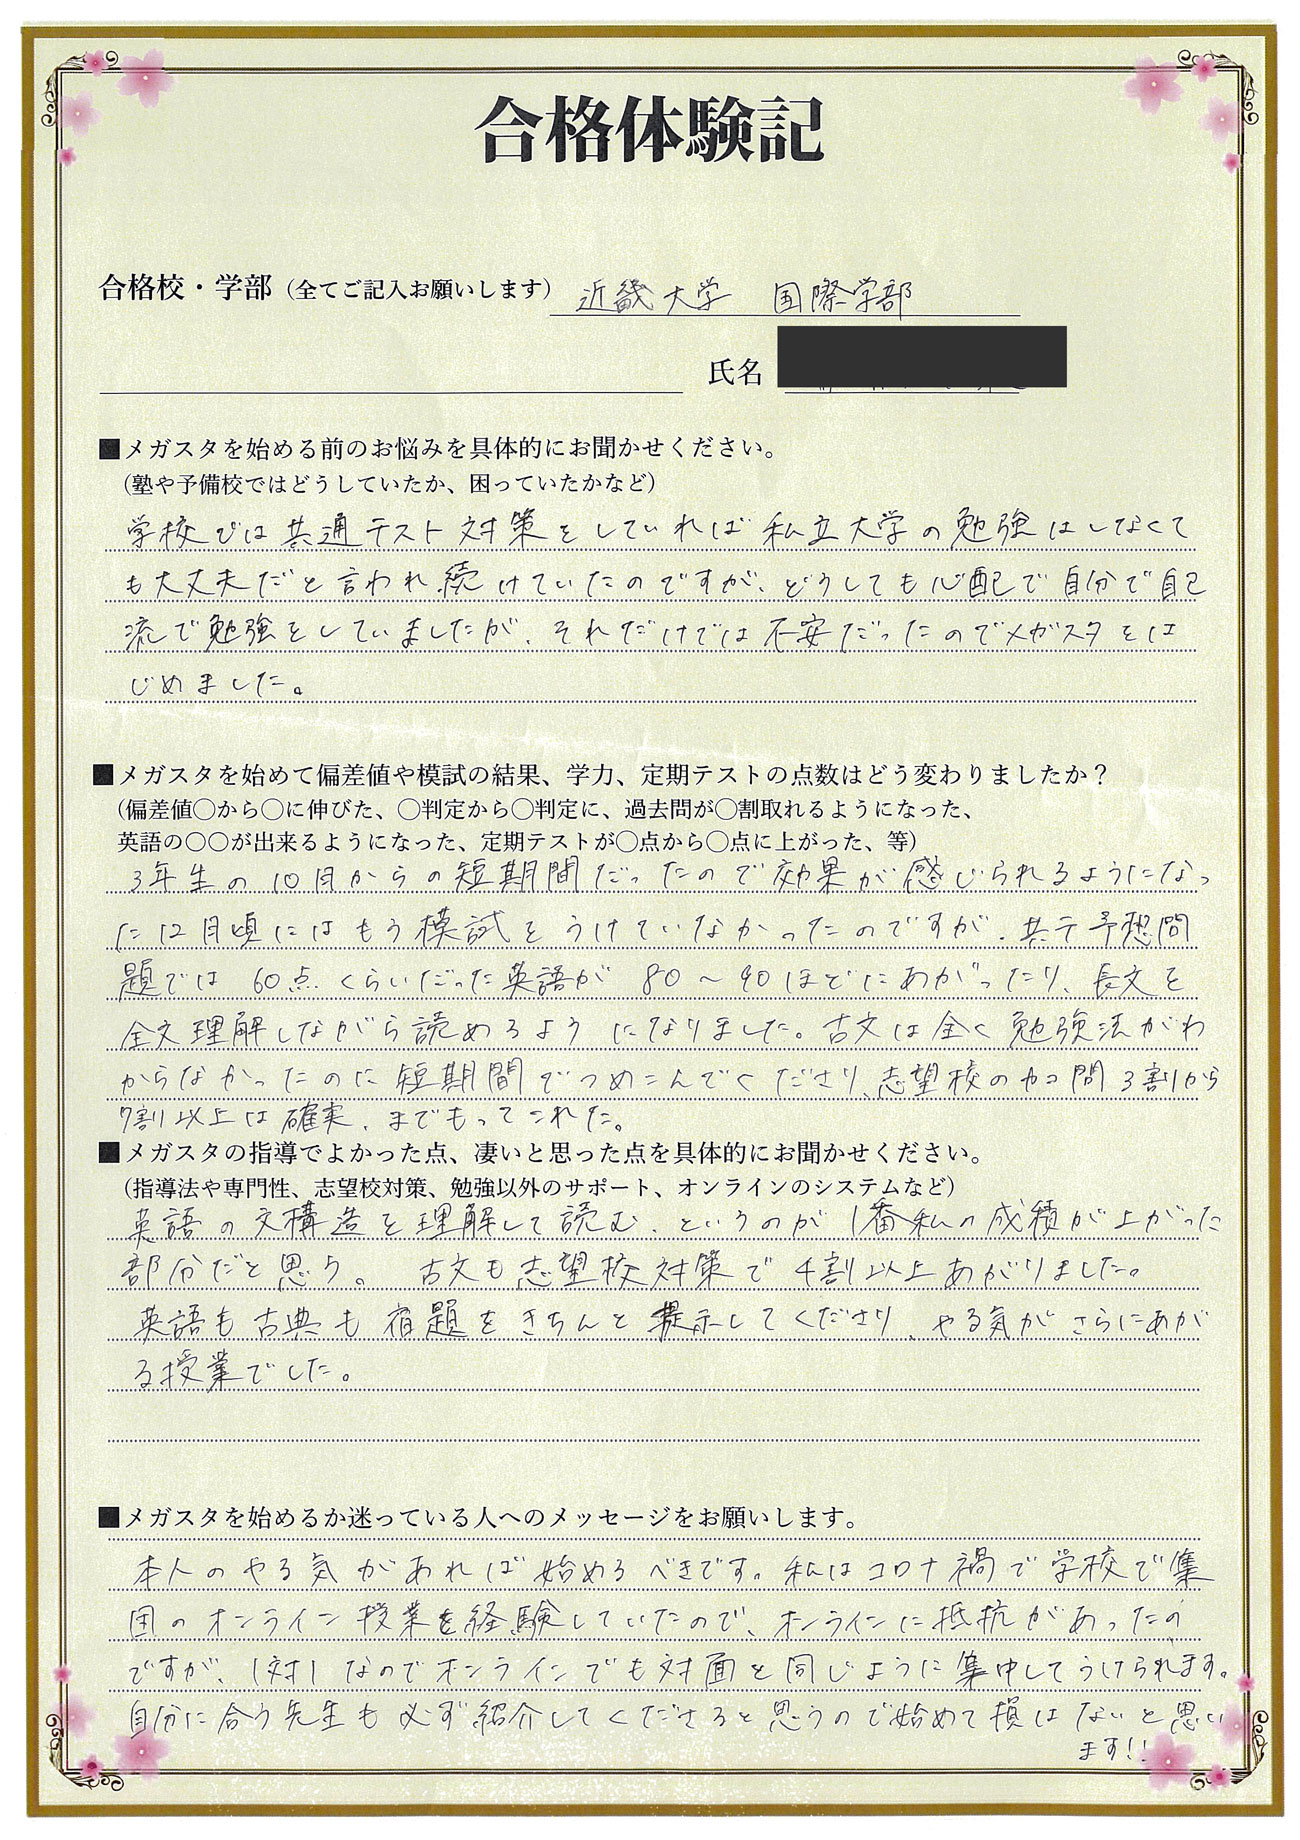 合格体験記
合格校・学部（全てご記入お願いします） 近畿大学 国際学部
氏名
■メガスタを始める前のお悩みを具体的にお聞かせください。
（塾や予備校ではどうしていたか、困っていたかなど）
学校では共通テスト対策をしていれば私立大学の勉強はしなくて
も大丈夫だと言われ続けていたのですが、どうしても心配で自分で自己
流で勉強をしていましたが、それだけでは不安だったのでメガスタをは
じめました。
■メガスタを始めて偏差値や模試の結果、学力、定期テストの点数はどう変わりましたか？
（偏差値〇から〇に伸びた、〇判定から〇判定に、過去問が〇割取れるようになった、
英語の〇〇が出来るようになった、定期テストが〇点から〇点に上がった、等）
3年生の10月からの短期間だったので効果が感じられるようになっ
た12月頃にはもう模試をうけていなかったのですが、共テ予想問
題では60点くらいだった英語が80～90ほどにあがったり、長文を
全文理解しながら読めるようになりました。古文は全く勉強法がわ
からなかったのに短期間でつめこんでくださり、志望校のカコ問3割から
7割以上は確実、までもってこれた。
■メガスタの指導でよかった点、凄いと思った点を具体的にお聞かせください。
（指導法や専門性、志望校対策、勉強以外のサポート、オンラインのシステムなど）
英語の文構造を理解して読む、というのが1番私の成績が上がった
部分だと思う。 古文も志望校対策で4割以上あがりました。
英語も古典も宿題をきちんと提示してくださり、やる気がさらにあが
る授業でした。
■メガスタを始めるか迷っている人へのメッセージをお願いします。
本人のやる気があれば始めるべきです。私はコロナ禍で学校で集
団のオンライン授業を経験していたので、オンラインに抵抗があったの
ですが、1対1なのでオンラインでも対面と同じように集中してうけられます。
自分に合う先生も必ず紹介してくださると思うので始めて損はないと思い
ます!!